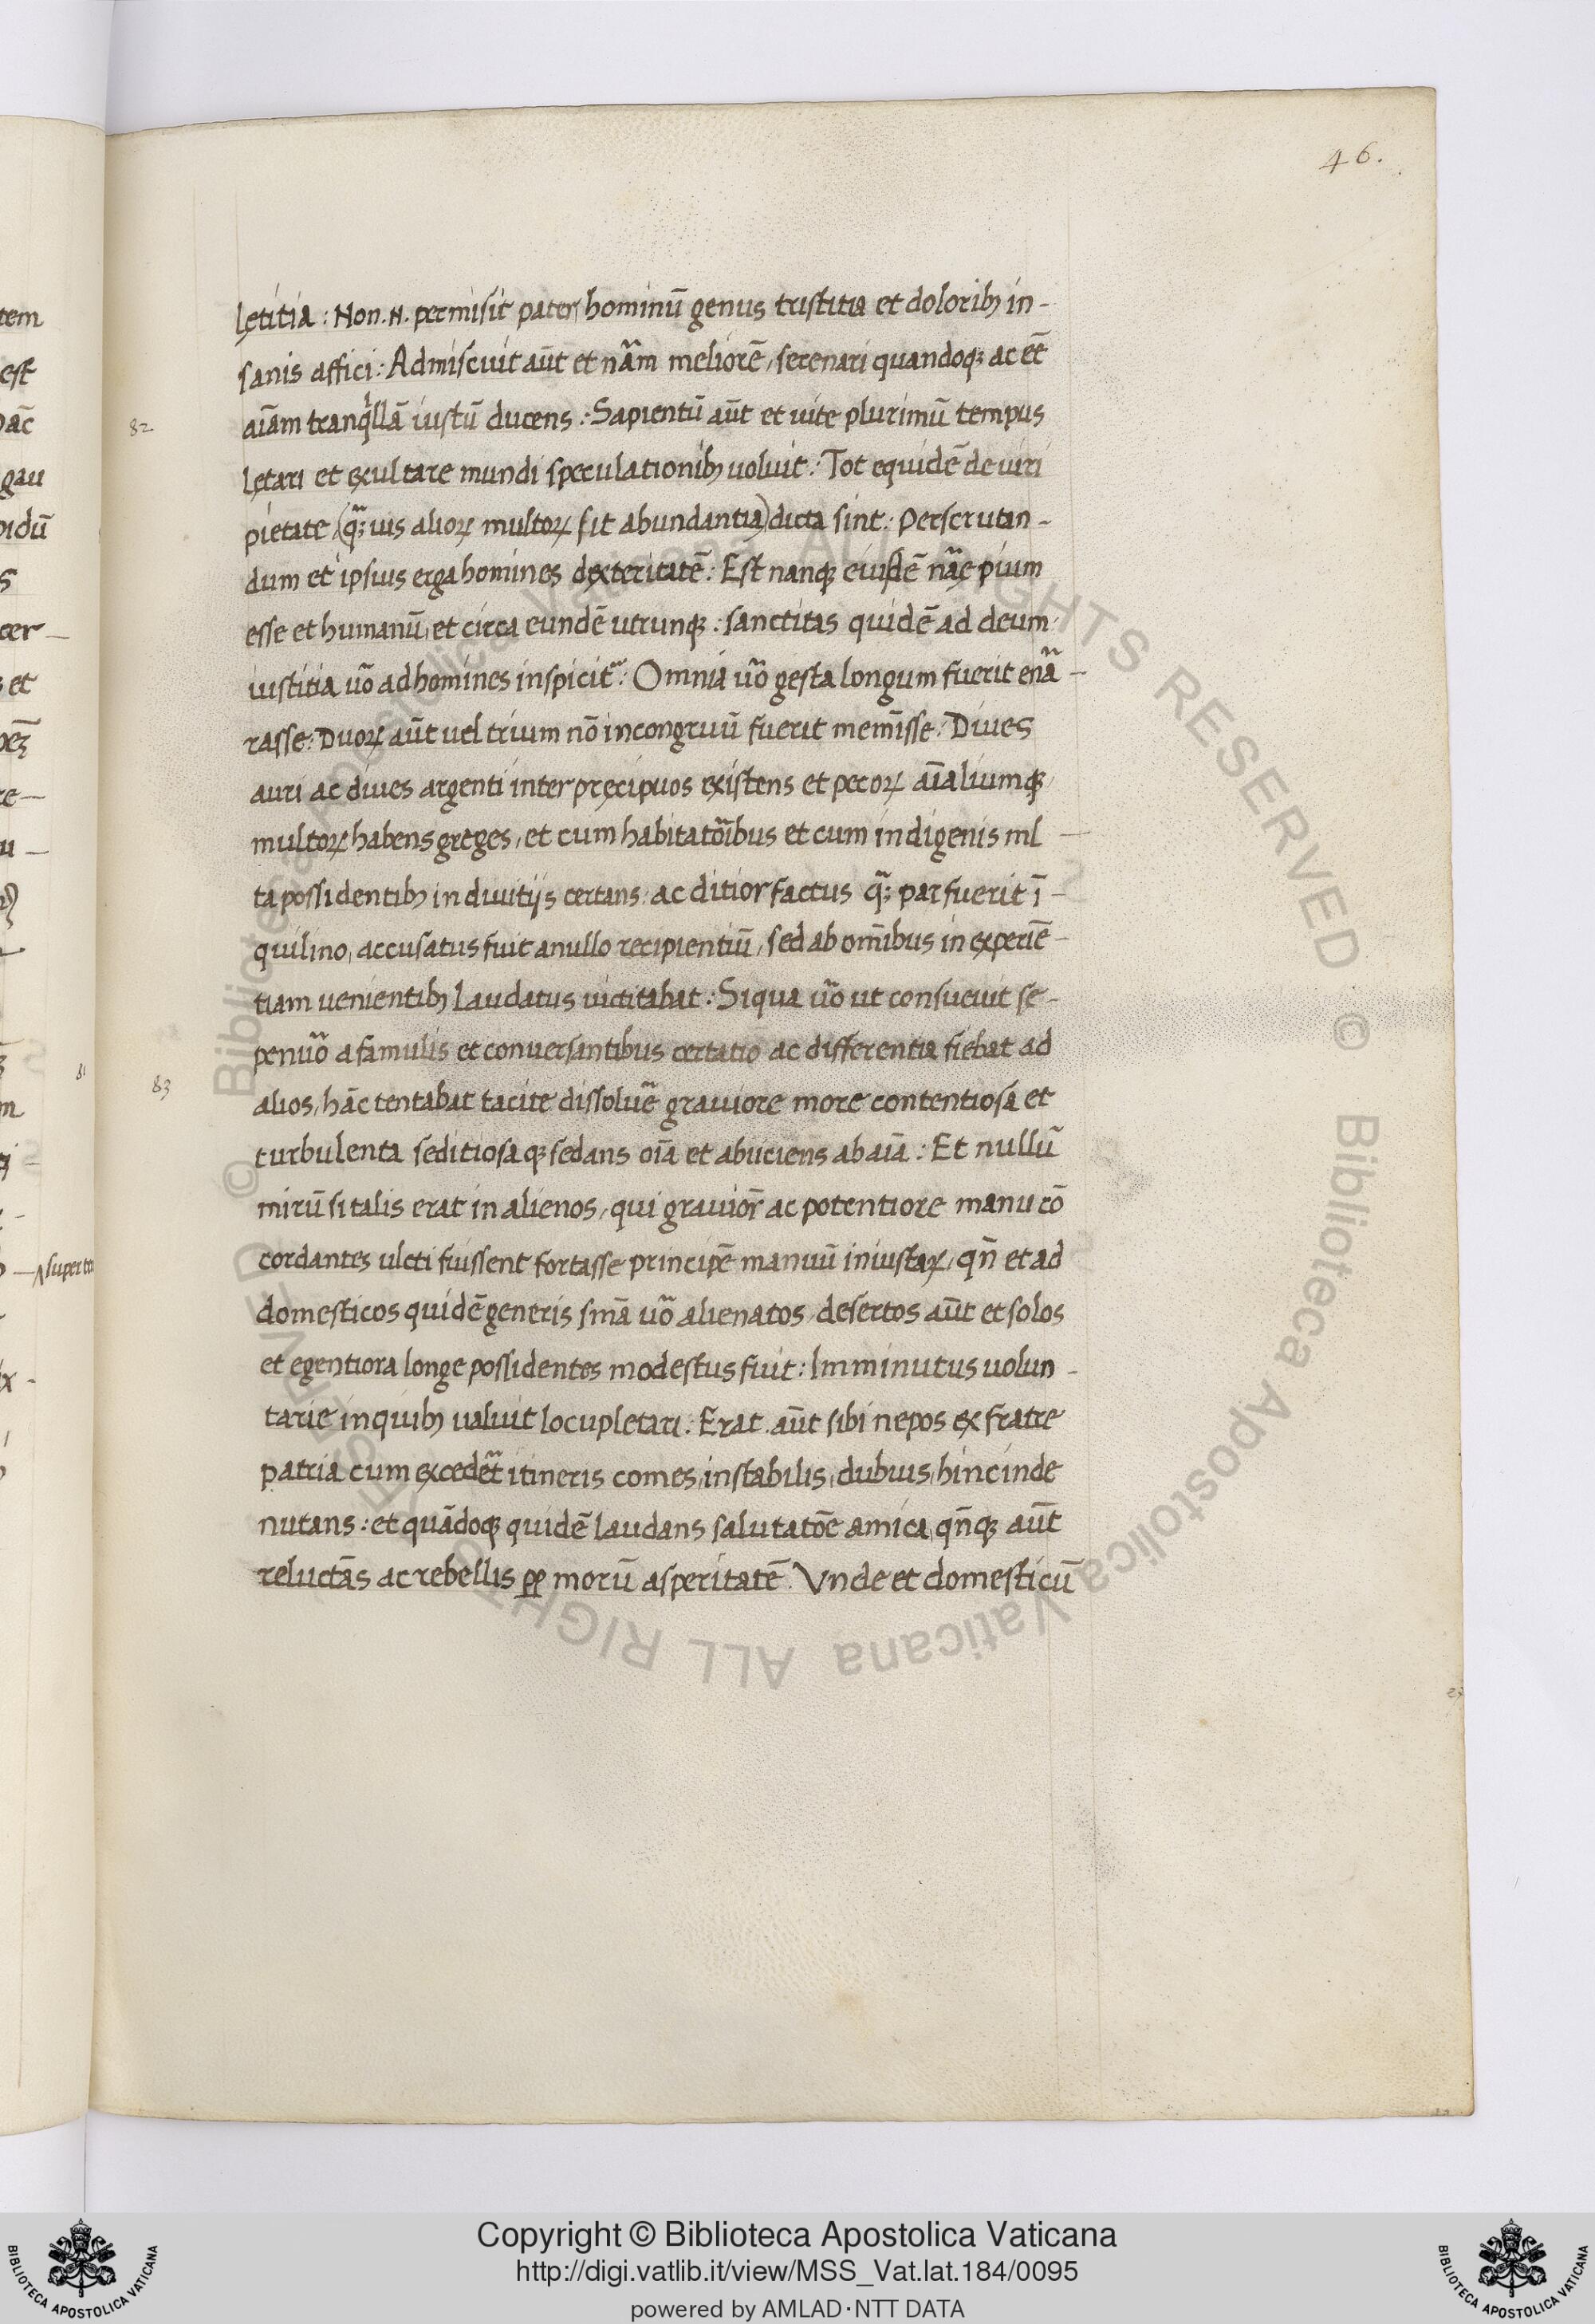 46.
lętitia : Non .N. permisit pater hominū genus tristitia et dolorib; in-
sanis affici : Admiscuit aūt et nr̄am meliorē, serenari quandoq; ac et̄
82
aīam tranqⁱllā iustū ducens : Sapientū aūt et uite plurimū tempus
lętari et exultare mundi speculationib; uoluit : Tot equidē de uiri
pietate (q̄;uis alioꝝ multoꝝ sit abundantia) dicta sint : Perscrutan-
dum et ipsius erga homines dexteritatē : Est nanq; eiusdē nāe pium
esse et humanū, et circa eundē utrunq; : sanctitas quidē ad deum.
iustitia uō ad homines inspicit̄ : Omnia uō gesta longum fuerit enā-
rasse : Duoꝝ aūt uel trium nō incongruū fuerit memīsse : Diues
auri ac diues argenti inter pręcipuos existens et pecoꝝ aīaliumq;
multoꝝ habens greges, et cum habitatōibus et cum indigenis ml-
ta possidentib; in diuitijs certans, ac ditior factus q̄; par fuerit ī-
quilino, accusatus fuit a nullo recipientiū, sed ab om̄ibus in experiē-
tiam uenientib; laudatus uictitabat : Si qua uō ut consueuit se-
penuō a famulis et conuersantibus certatio ac differentia fiebat ad
81
83
alios, hāc tentabat tacite dissoluē grauiore more contentiosa et
turbulenta seditiosaq; sedans oīa et abiiciens ab aīa : Et nullū
mirū si talis erat in alienos, qui grauior̄ ac potentiore manu cō
cordantes ulcti fuissent fortasse principē manuū iniustaꝝ, qn̄ et ad
domesticos quidē generis smā uō alienatos, desertos aūt et solos
et egentiora longe possidentes modestus fuit : Imminutus uolun-
tarie in quib; ualuit locupletari : Erat aūt sibi nepos ex fratre
patria cum excedēt itineris comes, instabilis, dubius, hinc inde
nutans : et quādoq; quidē laudans salutatōe amica, qn̄q; aūt
reluctās ac rebellis ꝓꝑ morū asperitatē. Vnde et domesticū
Copyright © Biblioteca Apostolica Vaticana
http://digi.vatlib.it/view/MSS_Vat.lat.184/0095
powered by AMLAD·NTT DATA